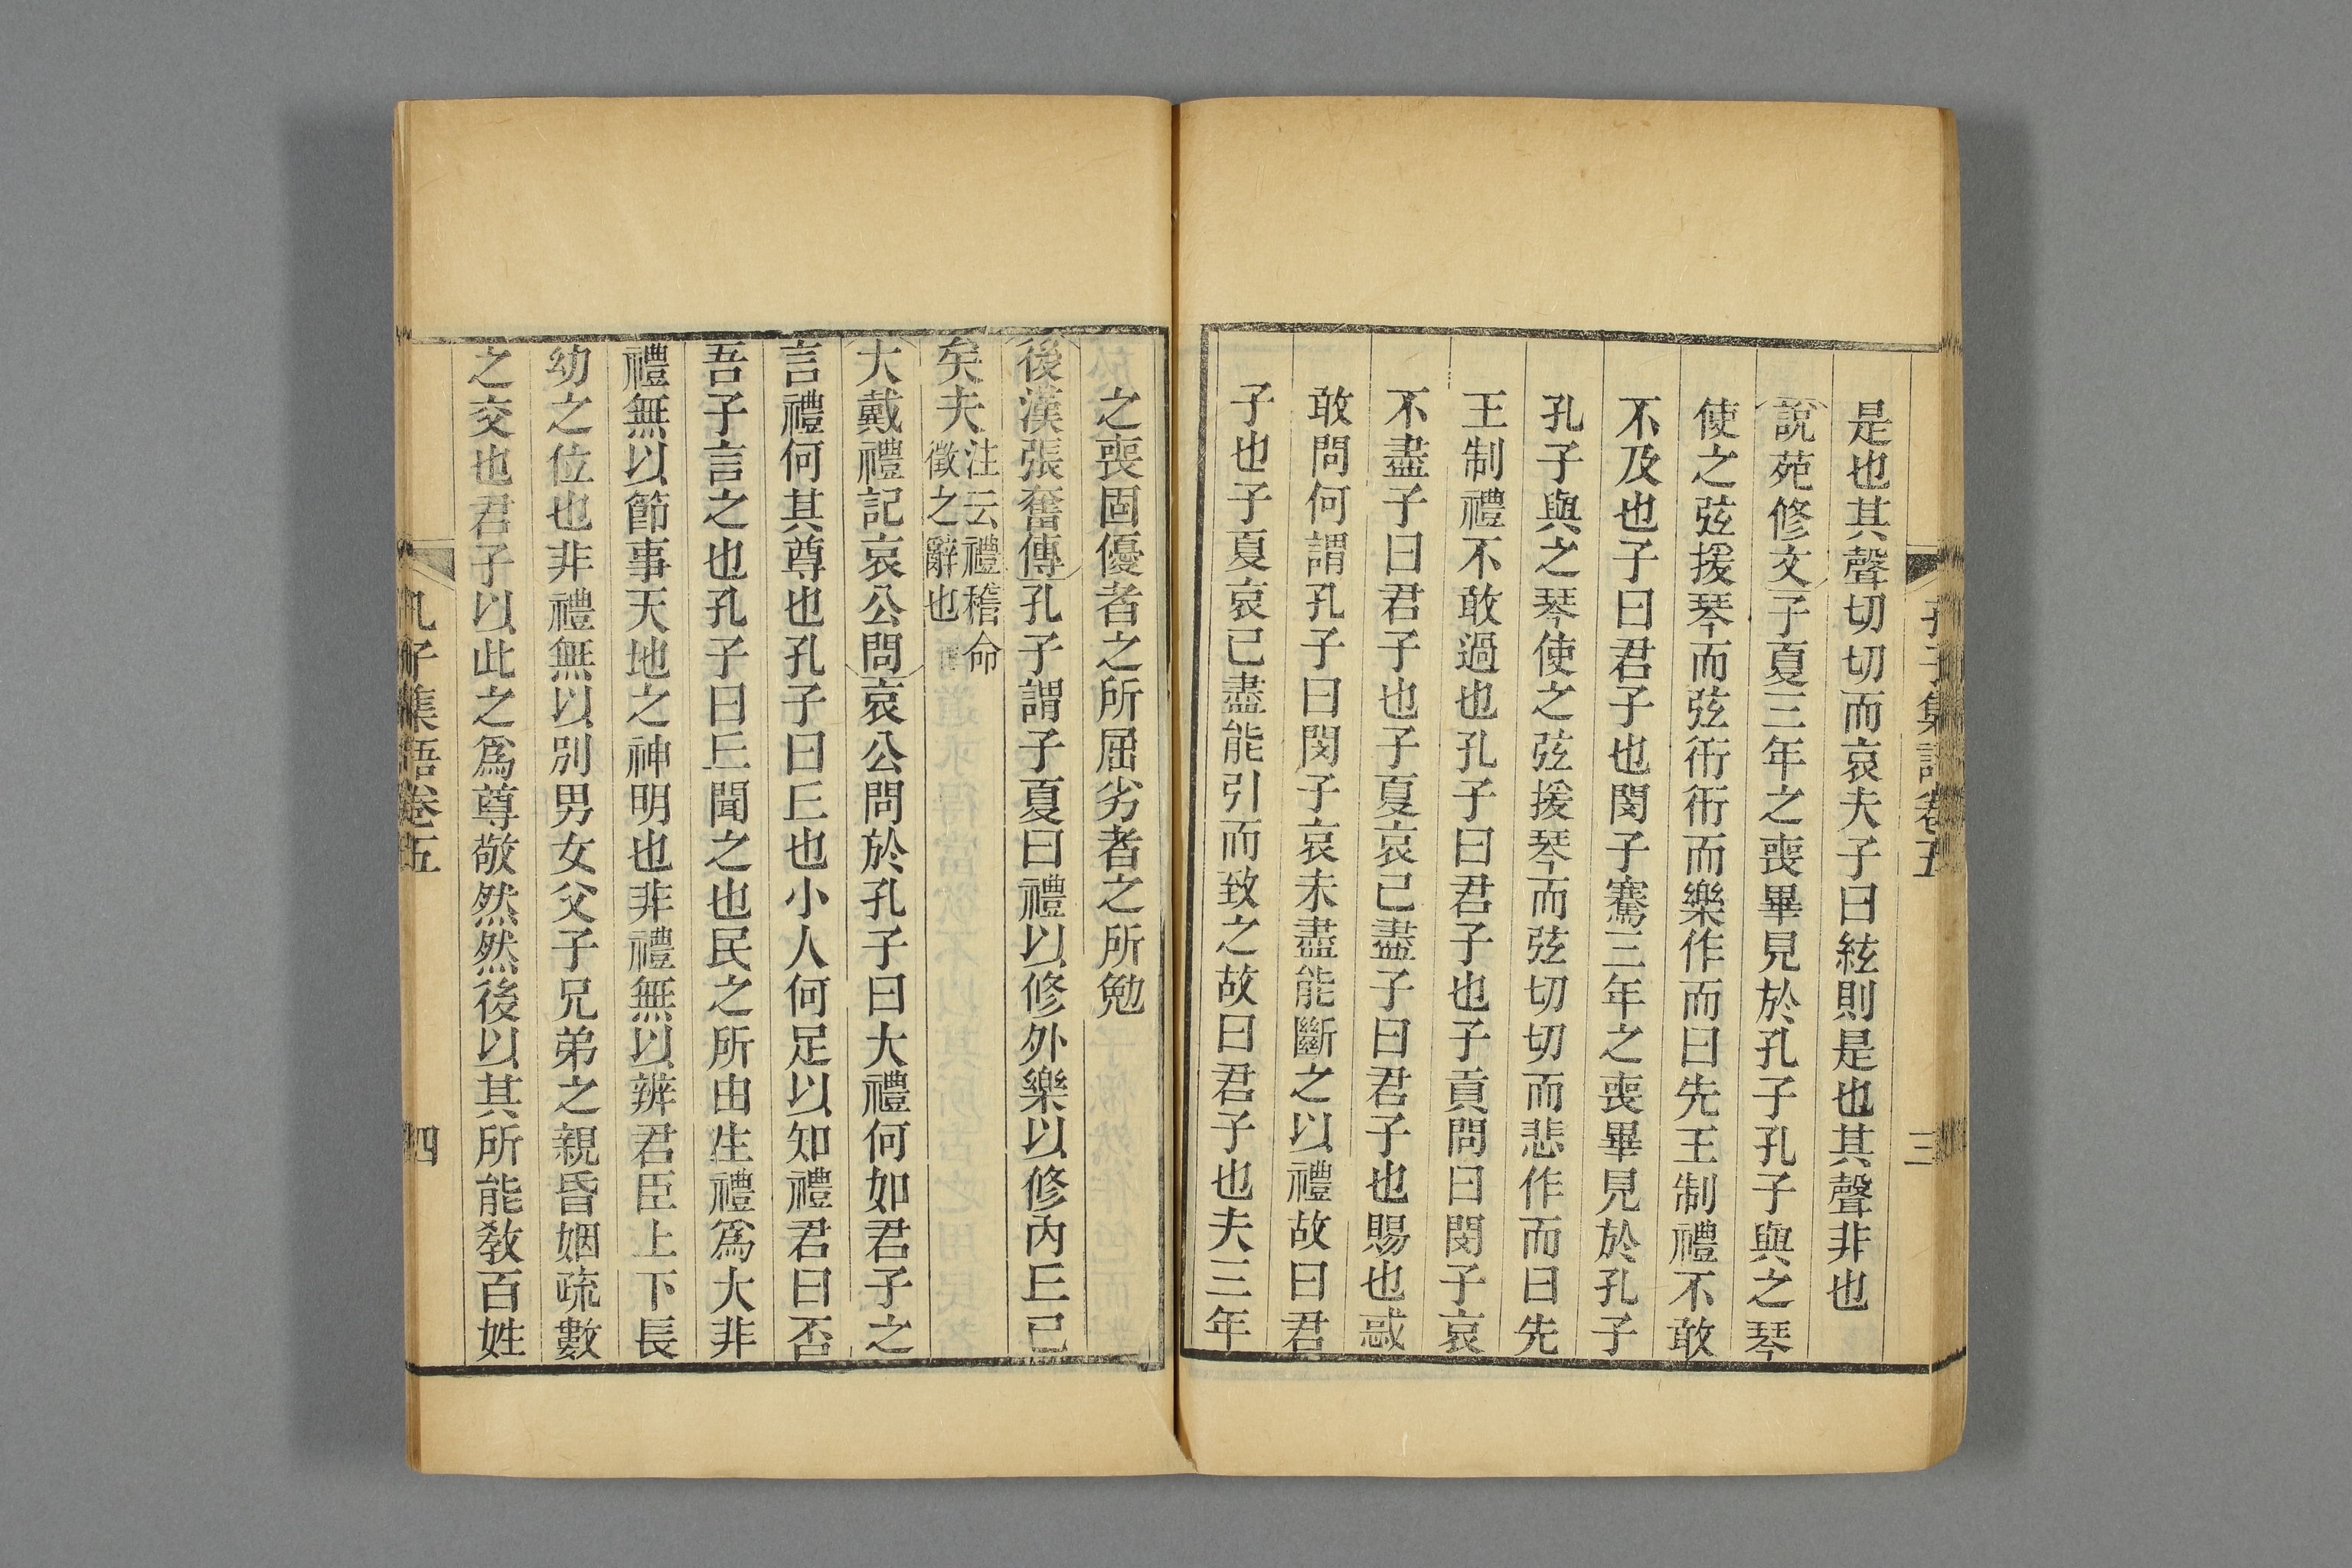 孔子集語卷五
三
是也其聲切切而哀夫子曰絃則是也其聲非也
說苑修文子夏三年之喪畢見於孔子孔子與之琴
使之弦援琴而弦衎衎而樂作而曰先王制禮不敢
不及也子曰君子也閔子騫三年之喪畢見於孔子
孔子與之琴使之弦援琴而弦切切而悲作而曰先
王制禮不敢過也孔子曰君子也子貢問曰閔子哀
不盡子曰君子也子夏哀已盡子曰君子也賜也惑
敢問何謂孔子曰閔子哀未盡能斷之以禮故曰君
子也子夏哀已盡能引而致之故曰君子也夫三年
之喪固優者之所屈劣者之所勉
後漢張奮傳孔子謂子夏曰禮以修外樂以修內㠪已
矣夫注云禮稽命
徵之辭也
大戴禮記哀公問哀公問於孔子曰大禮何如君子之
言禮何其尊也孔子曰㠪也小人何足以知禮君曰否
吾子言之也孔子曰㠪聞之也民之所由生禮爲大非
禮無以節事天地之神明也非禮無以辨君臣上下長
幼之位也非禮無以別男女父子兄弟之親昏姻疏數
之交也君子以此之爲尊敬然然後以其所能敎百姓
孔子集語卷五
四